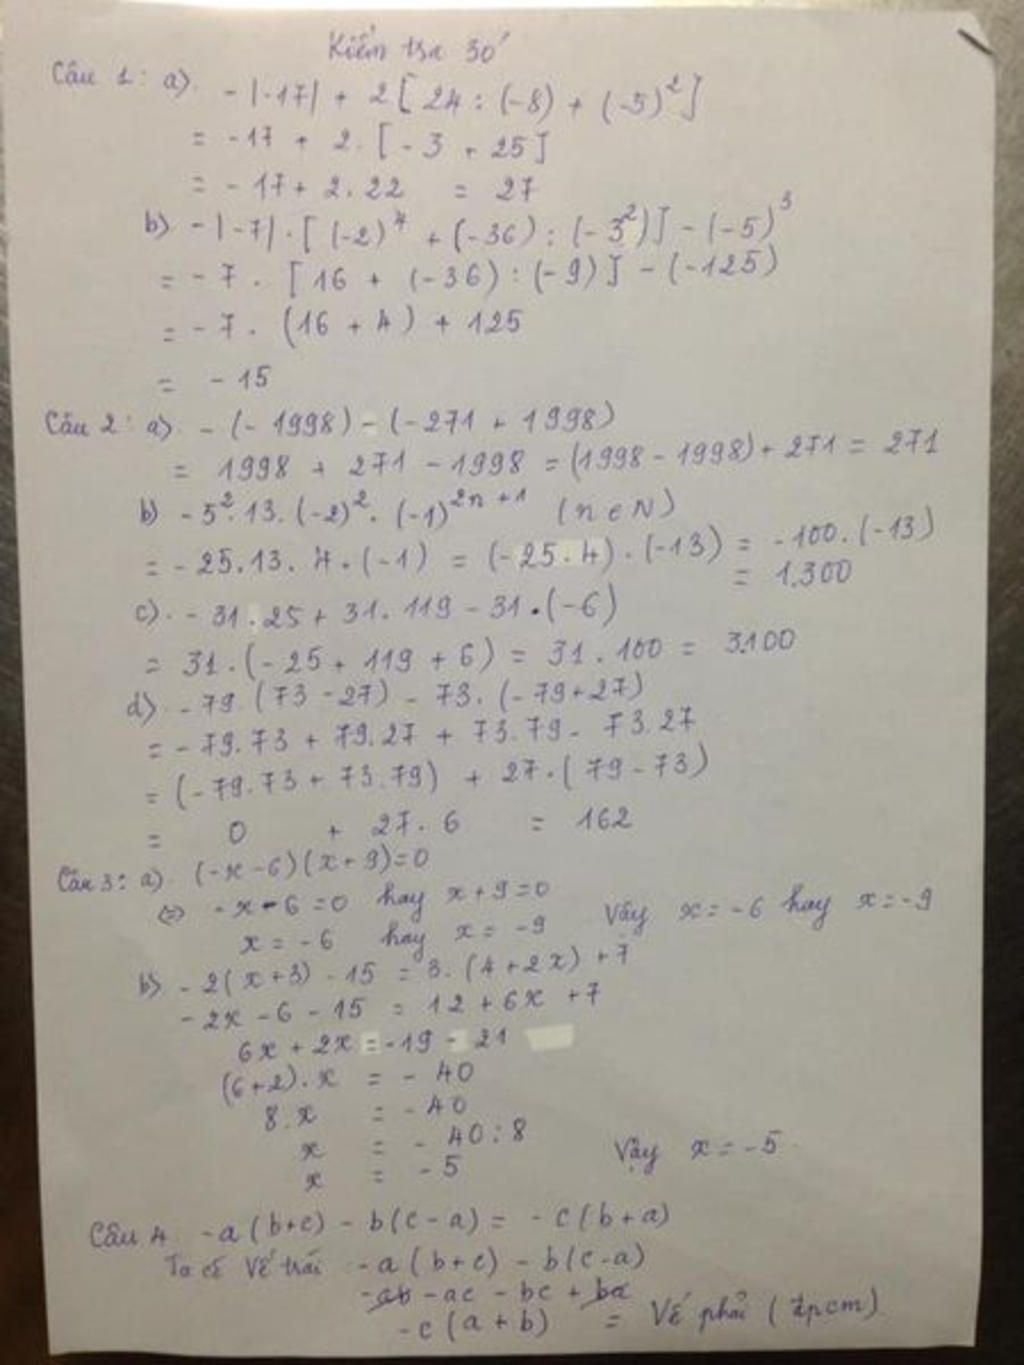 Kiểm tra 30'
Câu 1: a) -|-17| + 2[24 : (-8) + (-5)²]
= -17 + 2. [-3 + 25]
= -17 + 2.22 = 27
b) -|-7|.[(-2)⁴ + (-36) : (-3²)] - (-5)³
= -7 . [16 + (-36) : (-9)] - (-125)
= -7 . (16 + 4) + 125
= -15
Câu 2: a) -(-1998) - (-271 + 1998)
= 1998 + 271 - 1998 = (1998 - 1998) + 271 = 271
b) -5².13.(-2)².(-1)²ⁿ⁺¹ (n ∈ N)
= -25.13.4.(-1) = (-25.4).(-13) = -100.(-13)
= 1.300
c) -31.25 + 31.119 - 31.(-6)
= 31.(-25 + 119 + 6) = 31.100 = 3.100
d) -79.(73 - 27) - 73.(-79 + 27)
= -79.73 + 79.27 + 73.79 - 73.27
= (-79.73 + 73.79) + 27.(79 - 73)
= 0 + 27.6 = 162
Câu 3: a) (-x - 6)(x + 9) = 0
(=) -x - 6 = 0 hay x + 9 = 0
x = -6 hay x = -9 Vậy x = -6 hay x = -9
b) -2(x + 3) - 15 = 3.(4 + 2x) + 7
-2x - 6 - 15 = 12 + 6x + 7
6x + 2x = -19 - 21
(6+2).x = -40
8.x = -40
x = -40 : 8
x = -5 Vậy x = -5
Câu 4. -a(b+c) - b(c-a) = -c(b+a)
Ta có Vế trái -a(b+c) - b(c-a)
-ab - ac - bc + ba
-c(a+b) = Vế phải (đpcm)